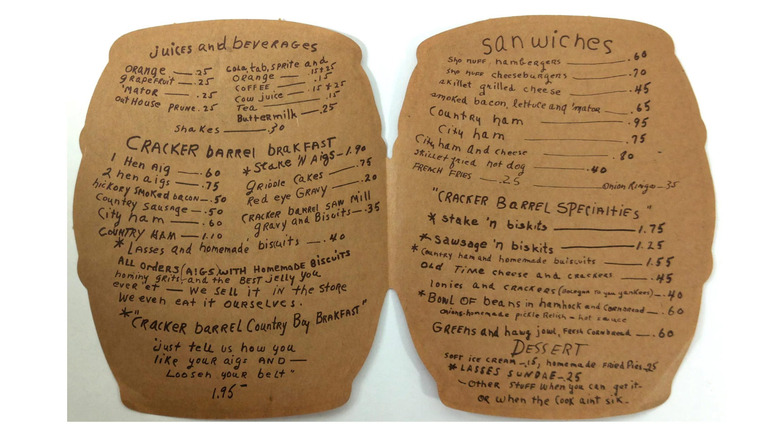 juices and beverages
ORANGE — .25
grapefruit — .25
'mator — .25
outHouse prune .25
cola, tab, sprite and
orange — .15 & 25
coffee — .15
cow juice — .15 & 25
Tea — .15
Buttermilk — .25
shakes — .30
CRACKER barrel brakfast
1 Hen Aig — .60
2 hen aigs — .75
hickory smoked bacon — .50
country sausage — .50
city ham — .60
COUNTRY HAM — 1.10
* Stake 'N Aigs — 1.90
griddle cakes — .75
Red eye GRAVY — .20
CRACKER barrel SAW Mill
gravy and Biscuits — .35
* Lasses and homemade biscuits — .40
ALL ORDERS/AIGS WITH HOMEMADE BISCUITS
hominy grits and the BEST jelly you
ever et — We sell it in the store
We even eat it ourselves.
* "CRACKER barrel Country Boy BRAKFAST"
"just tell us how you
like your aigs AND —
Loosen your belt"
1.95
sanwiches
sho nuff hambergers — .60
sho nuff cheeseburgers — .70
skillet grilled cheese — .45
smoked bacon, lettuce and 'mator — .65
country ham — .95
city ham — .75
City ham and cheese — .80
skillet fried hot dog — .40
FRENCH FRIES — .25 Onion Rings — .35
"CRACKER BARREL SPECIALTIES"
* stake 'n biskits — 1.75
* sawsage 'n biskits — 1.25
* country ham and homemade buiscuits — 1.55
OLD TIME cheese and crackers — .45
lonies and crackers (bologna to you yankees) — .40
* BOWL OF beans in hamhock and cornbread — .60
onions-homemade pickle Relish - hot sauce
GREENS and hawg jowl, FRESH Cornbread — .60
DESSERT
SOFT ICE CREAM — .15, homemade FRIED Pies .25
* LASSES SUNDAE — .25
— OTHER STUFF when you can get it.
OR when the Cook aint sik.